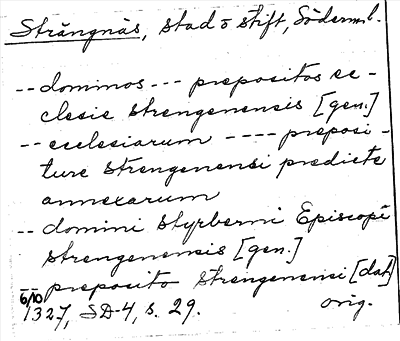 Strängnäs, stad o stift, Söderml.
-- dominos --- prepositos ec-
clesie strengenensis [gen.]
-- ecclesiarum ---- preposi-
ture strengenensi predicte
annexarum
-- domini styrberni Episcopi
strengenensis [gen.]
-- preposito strengenensi [dat]
6/10 1327, SD 4, s. 29. orig.